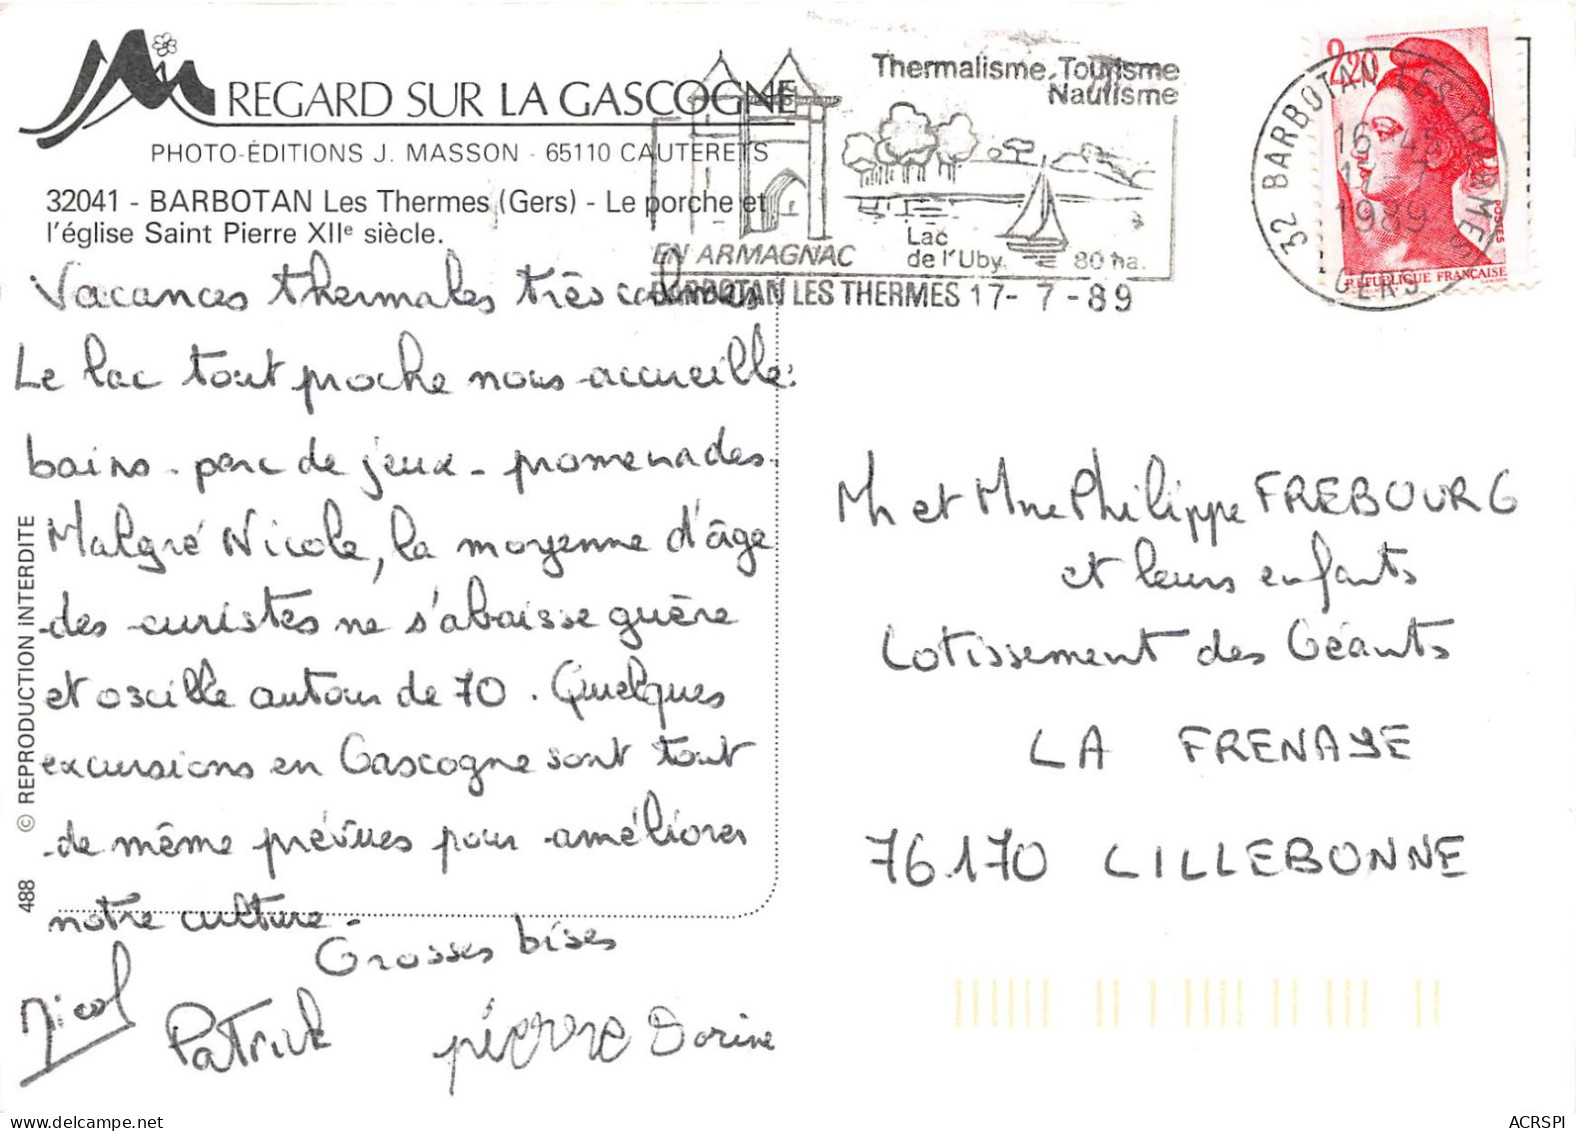 REGARD SUR LA GASCOGNE
PHOTO-ÉDITIONS J. MASSON - 65110 CAUTERETS
32041 - BARBOTAN Les Thermes (Gers) - Le porche et
l'église Saint Pierre XIIe siècle.
Thermalisme. Tourisme
Nautisme
EN ARMAGNAC
Lac
de l'Uby. 80 ha.
BARBOTAN LES THERMES 17-7-89
32 BARBOTAN LES THERMES
16 H 45
17-7
1989
GERS
2,20
POSTES
REPUBLIQUE FRANÇAISE
Vacances thermales très calmes
Le lac tout proche nous accueille:
bains - parc de jeux - promenades.
Malgré Nicole, la moyenne d'âge
des curistes ne s'abaisse guère
et oscille autour de 70. Quelques
excursions en Gascogne sont tout
de même prévues pour améliorer
notre culture.
Grosses bises
Nicol
Patrick
pierre Dorine
Mr et Mme Philippe FREBOURG
et leurs enfants
Lotissement des Géants
LA FRENAYE
76170 LILLEBONNE
© REPRODUCTION INTERDITE
488
ACRSPI